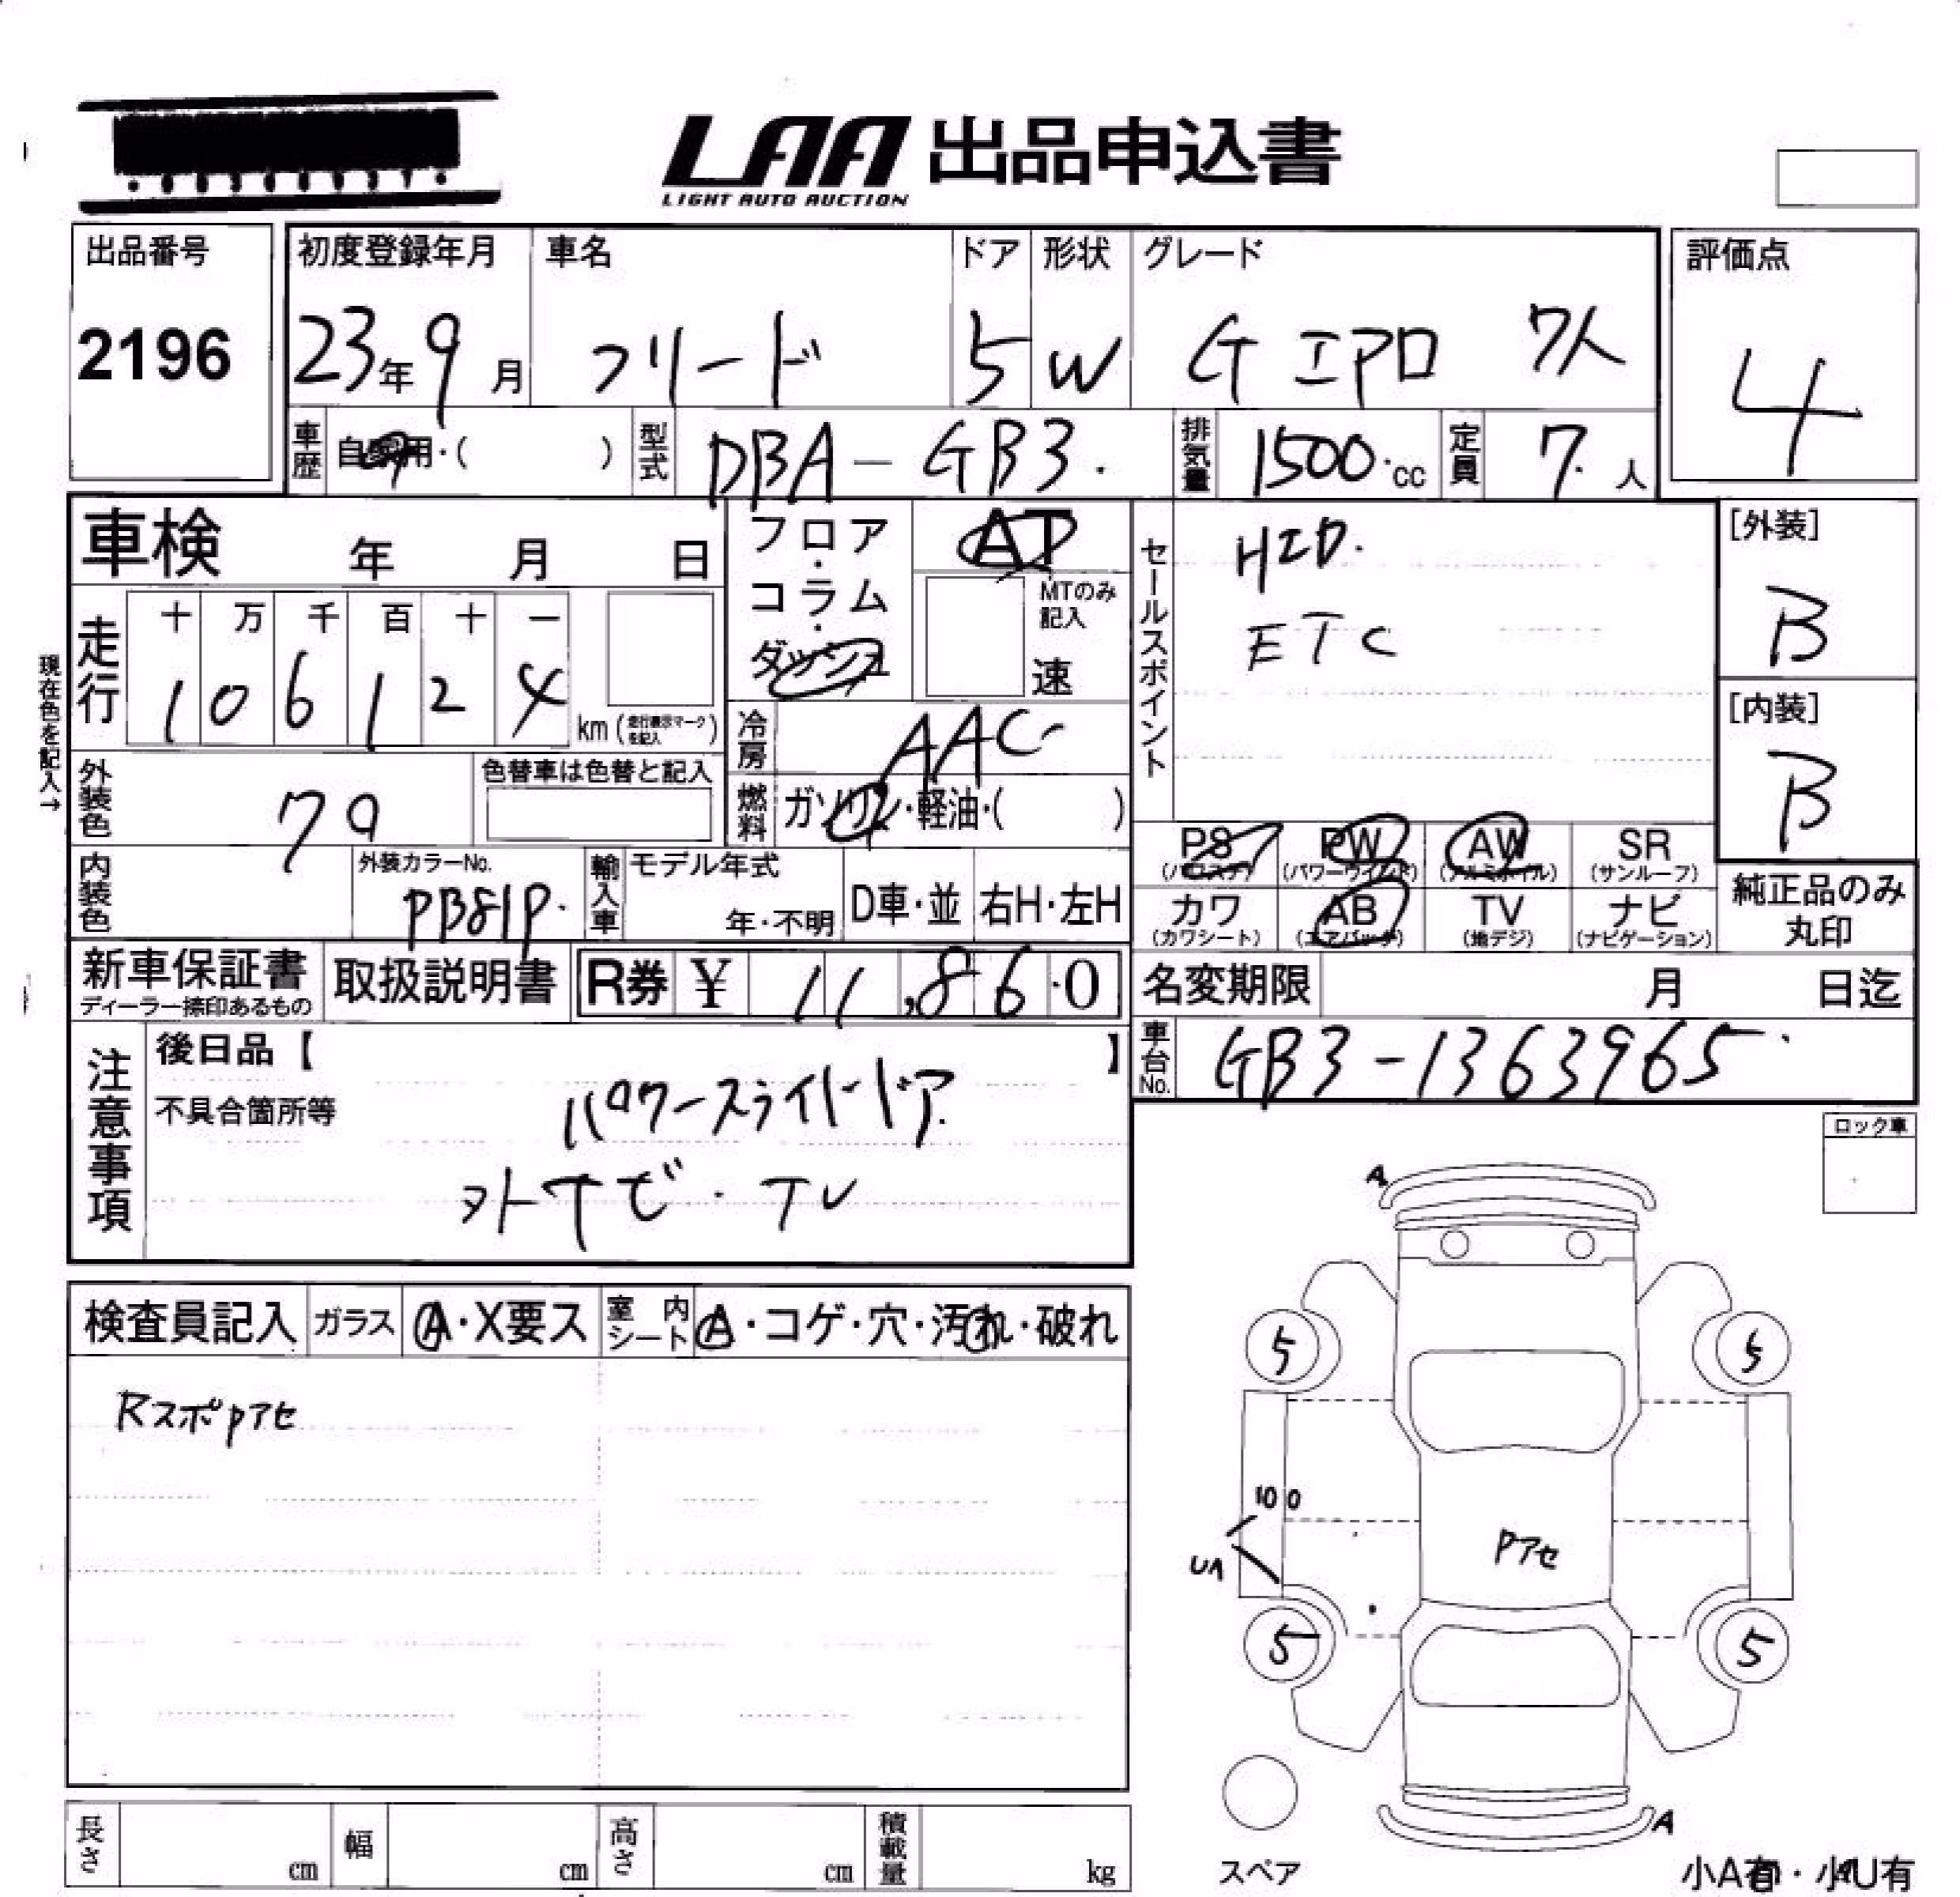 LAA 出品申込書
LIGHT AUTO AUCTION
出品番号
2196
初度登録年月
23年9月
車名
フリード
ドア
5
形状
W
グレード
G エアロ 7人
評価点
4
車歴
自家用・( )
型式
DBA-GB3.
排気量
1500.cc
定員
7.人
車検 年 月 日
フロア・コラム・ダッシュ
AT
MTのみ記入
速
セールスポイント
HID.
ETC
[外装]
B
[内装]
B
現在色を記入→
走行
十 万 千 百 十 一
1 0 6 1 2 4
km (走行表示マークを記入)
冷房
AAC
外装色
色替車は色替と記入
燃料
ガソリン・軽油・( )
PS (パワステ)
PW (パワーウインド)
AW (アルミホイル)
SR (サンルーフ)
カワ (カワシート)
AB (エアバック)
TV (地デジ)
ナビ (ナビゲーション)
純正品のみ丸印
内装色
外装カラーNo.
PB81P.
輸入車
モデル年式
年・不明
D車・並
右H・左H
新車保証書
ディーラー捺印あるもの
取扱説明書
R券 ¥ 11,860
名変期限 月 日迄
車台No.
GB3-1363965
注意事項
後日品【 】
不具合箇所等
パワースライドドア
外ナビ・TV
ロック車
A
検査員記入
ガラス
A・X要ス
室内シート
A・コゲ・穴・汚れ・破れ
RスポPアセ
5
5
100
UA
Pアセ
5
5
A
スペア
小A有・小U有
長さ cm
幅 cm
高さ cm
積載量 kg